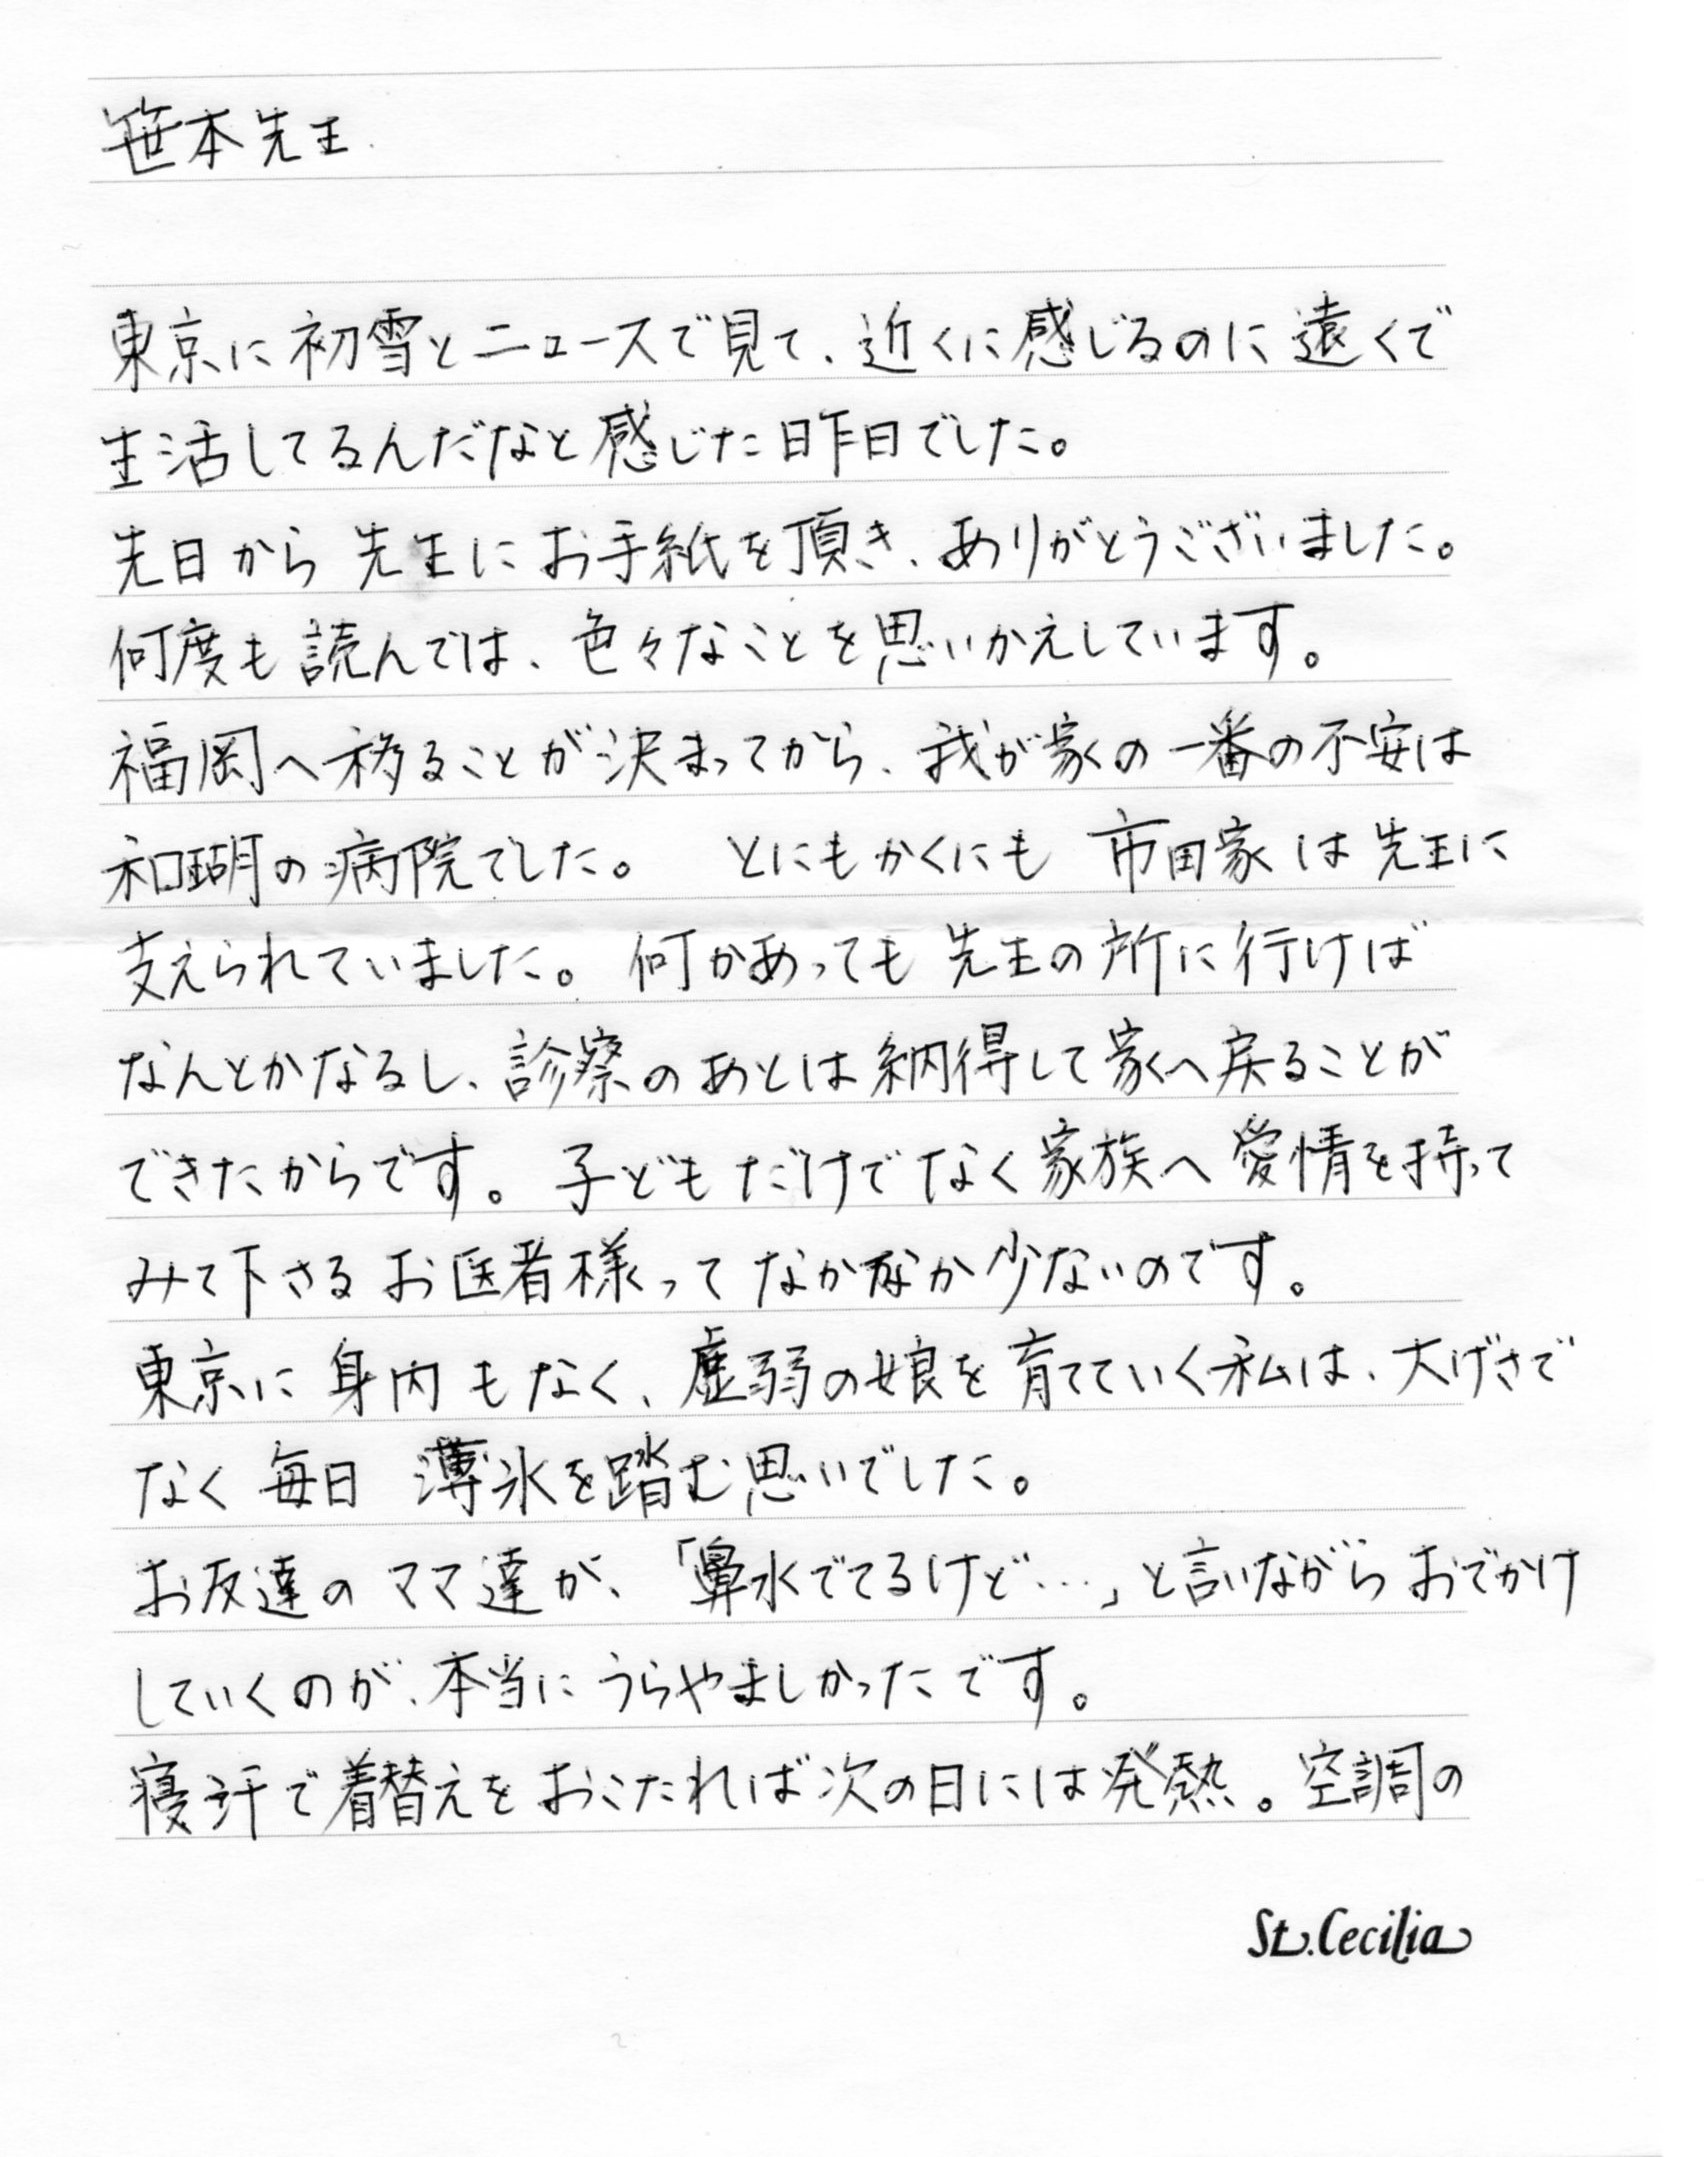 笹本先生
東京に初雪とニュースで見て、近くに感じるのに遠くで
生活してるんだなと感じた昨日でした。
先日から 先生にお手紙を頂き、ありがとうございました。
何度も読んでは、色々なことを思いかえしています。
福岡へ移ることが決まってから、我が家の一番の不安は
和瑚の病院でした。 とにもかくにも 市田家は先生に
支えられていました。何かあっても先生の所に行けば
なんとかなるし、診察のあとは納得して家へ戻ることが
できたからです。子どもだけでなく家族へ愛情を持って
みて下さるお医者様ってなかなか少ないのです。
東京に身内もなく、虚弱の娘を育てていく私は、大げさで
なく毎日 薄氷を踏む思いでした。
お友達のママ達が、「鼻水でてるけど…」と言いながらおでかけ
していくのが、本当にうらやましかったです。
寝汗で着替えをおこたれば次の日には発熱。空調の
St. Cecilia